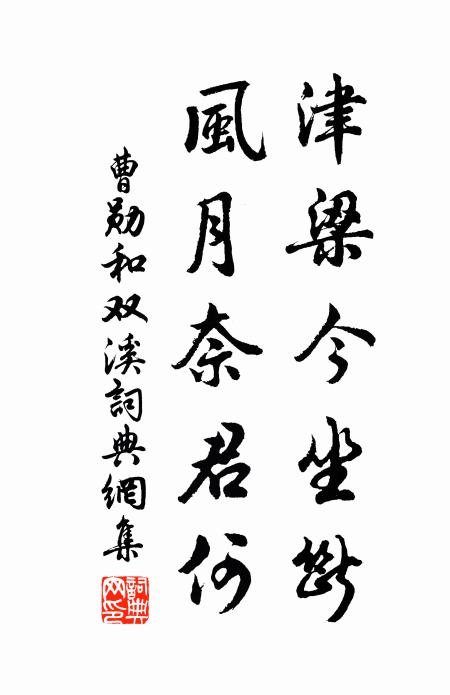 津梁今坐斷
風月奈君何
曹勛和双溪詞典網集
詞典網印